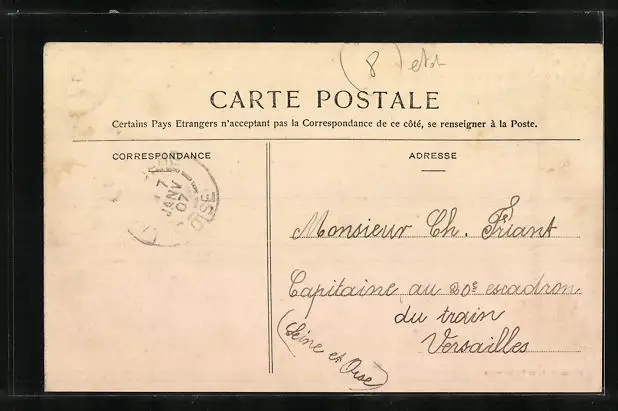 (8) etol
CARTE POSTALE
Certains Pays Etrangers n'acceptant pas la Correspondance de ce côté, se renseigner à la Poste.
CORRESPONDANCE
ADRESSE
7
JANV
07
OISE
Monsieur Ch. Friant
Capitaine au 20e escadron
du train
Versailles
(Seine et Oise)